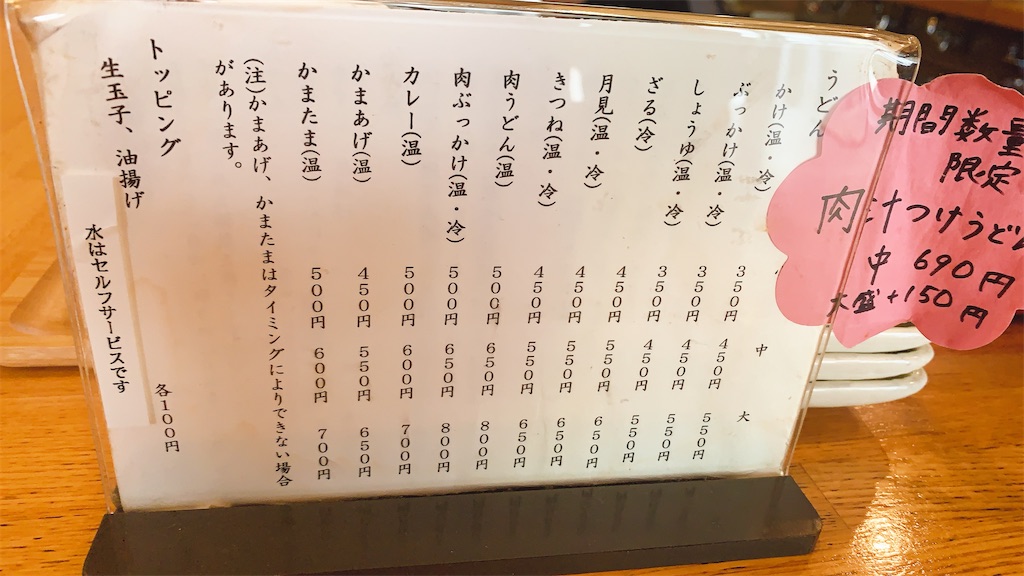 うどん 中 大
かけ(温・冷) 350円 450円 550円
ぶっかけ(温・冷) 350円 450円 550円
しょうゆ(温・冷) 350円 450円 550円
ざる(冷) 450円 550円 650円
月見(温・冷) 450円 550円 650円
きつね(温・冷) 450円 550円 650円
肉うどん(温) 500円 650円 800円
肉ぶっかけ(温・冷) 500円 650円 800円
カレー(温) 500円 600円 700円
かまあげ(温) 450円 550円 650円
かまたま(温) 500円 600円 700円
(注)かまあげ、かまたまはタイミングによりできない場合
があります。
トッピング
生玉子、油揚げ 各100円
水はセルフサービスです
期間数量
限定
肉汁つけうどん
中 690円
大盛+150円